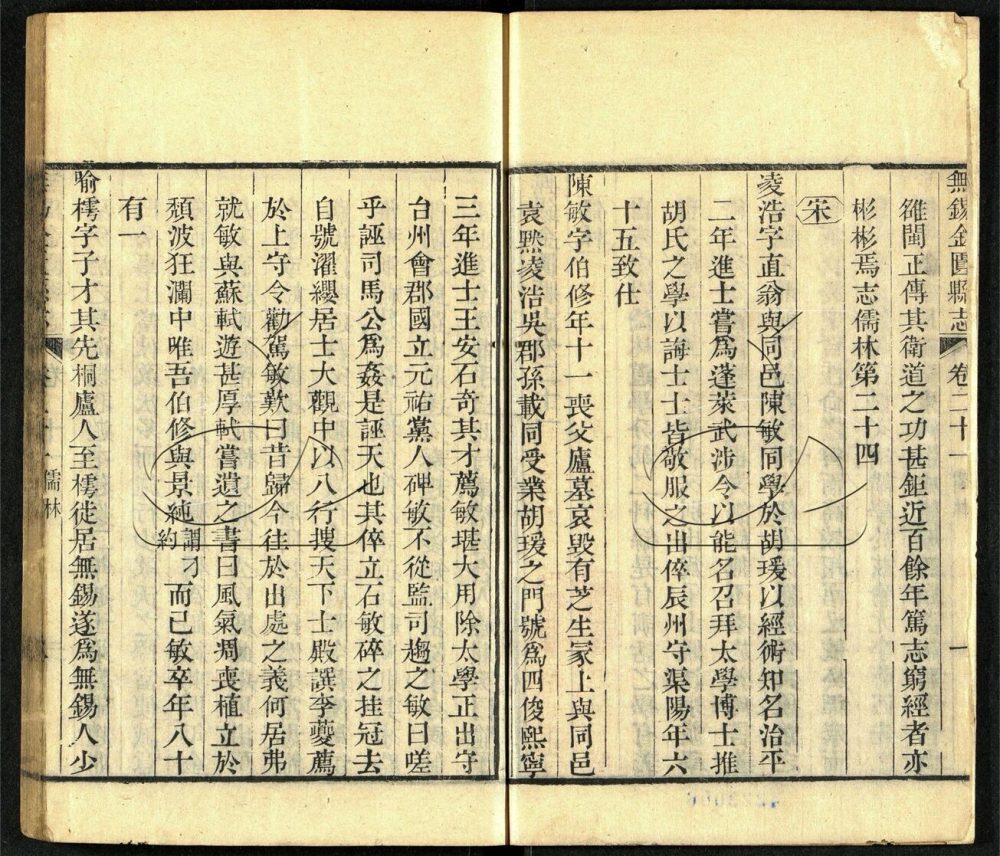 無錫金匱縣志 卷二十一 儒林 一
雒閩正傳其衛道之功甚鉅近百餘年篤志窮經者亦
彬彬焉志儒林第二十四
宋
凌浩字直翁與同邑陳敏同學於胡瑗以經術知名治平
二年進士嘗爲蓬萊武涉令以能名召拜太學博士推
胡氏之學以誨士士皆敬服之出倅辰州守渠陽年六
十五致仕
陳敏字伯修年十一喪父廬墓哀毀有芝生冢上與同邑
袁默凌浩吳郡孫載同受業胡瑗之門號爲四俊熙寧
三年進士王安石奇其才薦敏堪大用除太學正出守
台州會郡國立元祐黨人碑敏不從監司趨之敏曰嗟
乎誣司馬公爲姦是誣天也其倅立石敏碎之挂冠去
自號濯纓居士大觀中以八行搜天下士殿譔李夔薦
於上守令勸駕敏歎曰昔歸今往於出處之義何居弗
就敏與蘇軾遊甚厚軾嘗遺之書曰風氣凋喪植立於
頹波狂瀾中唯吾伯修與景純謂刁約而已敏卒年八十
有一
喻樗字子才其先桐廬人至樗徒居無錫遂爲無錫人少
儒林